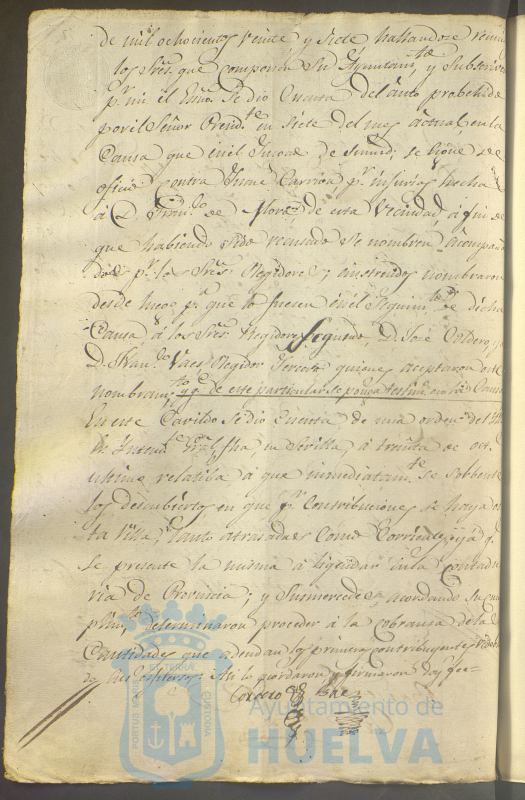 de mil ochocientos veinte y siete hallandose reuni
los Sres. que componen su Ayuntamto. y Subscrive
pr. mi el Esno. Se dio Cuenta del auto probehido
por el Señor Presidte. en siete del mes actual, en la
Causa que en el Juzgado de se sigue de
oficio contra Carrion pr. injurias hecha
á D. Franco. de Mora de esta Vecindad, á fin de
que habiendo sido recusado se nombren acompaña
dos pr. los Sres. Regidores; y nombraron
desde luego pa. que lo fuesen en el Seguimto. de dicha
Causa á los Sres. Regidores Segundo, D. José Cordero, y
D. Juan Vaes Regidor Tercero quienes aceptaron este
nombramto. y qe. de este particular se ponga testimo. en la Causa
En este Cavildo Se dio Cuenta de una orden del
Intendte. Gral. fha. en Sevilla, á treinta de octe.
ultimo relatiba á que inmediatamte. se solbente
los descubiertos en que pr. Contribuciones se haya es
ta Villa, tanto atrasadas como Corrientes, y á q.
se presente la misma á liquidar en la Contadu
ria de Provincia; y Susmercedes, acordando su cum
plimto. determinaron proceder á la cobranza de las
Cantidades que adeudan los primeros contribuyentes
de Asi lo acordaron y firmaron doy fee—
Cordero Vaez
PORTUS MARIS
ET TERRÆ
CUSTODIA
Ayuntamiento de
HUELVA